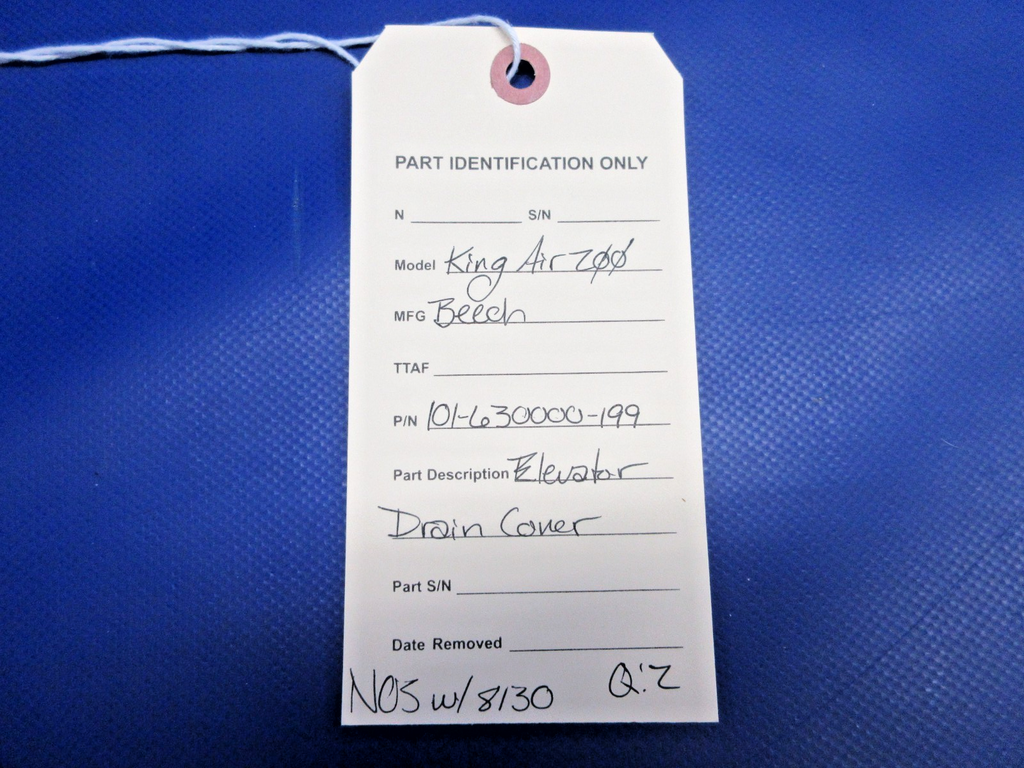 PART IDENTIFICATION ONLY
N S/N
Model King Air 200
MFG Beech
TTAF
P/N 101-630000-199
Part Description Elevator
Drain Cover
Part S/N
Date Removed
NOS w/ 8130 Q:2